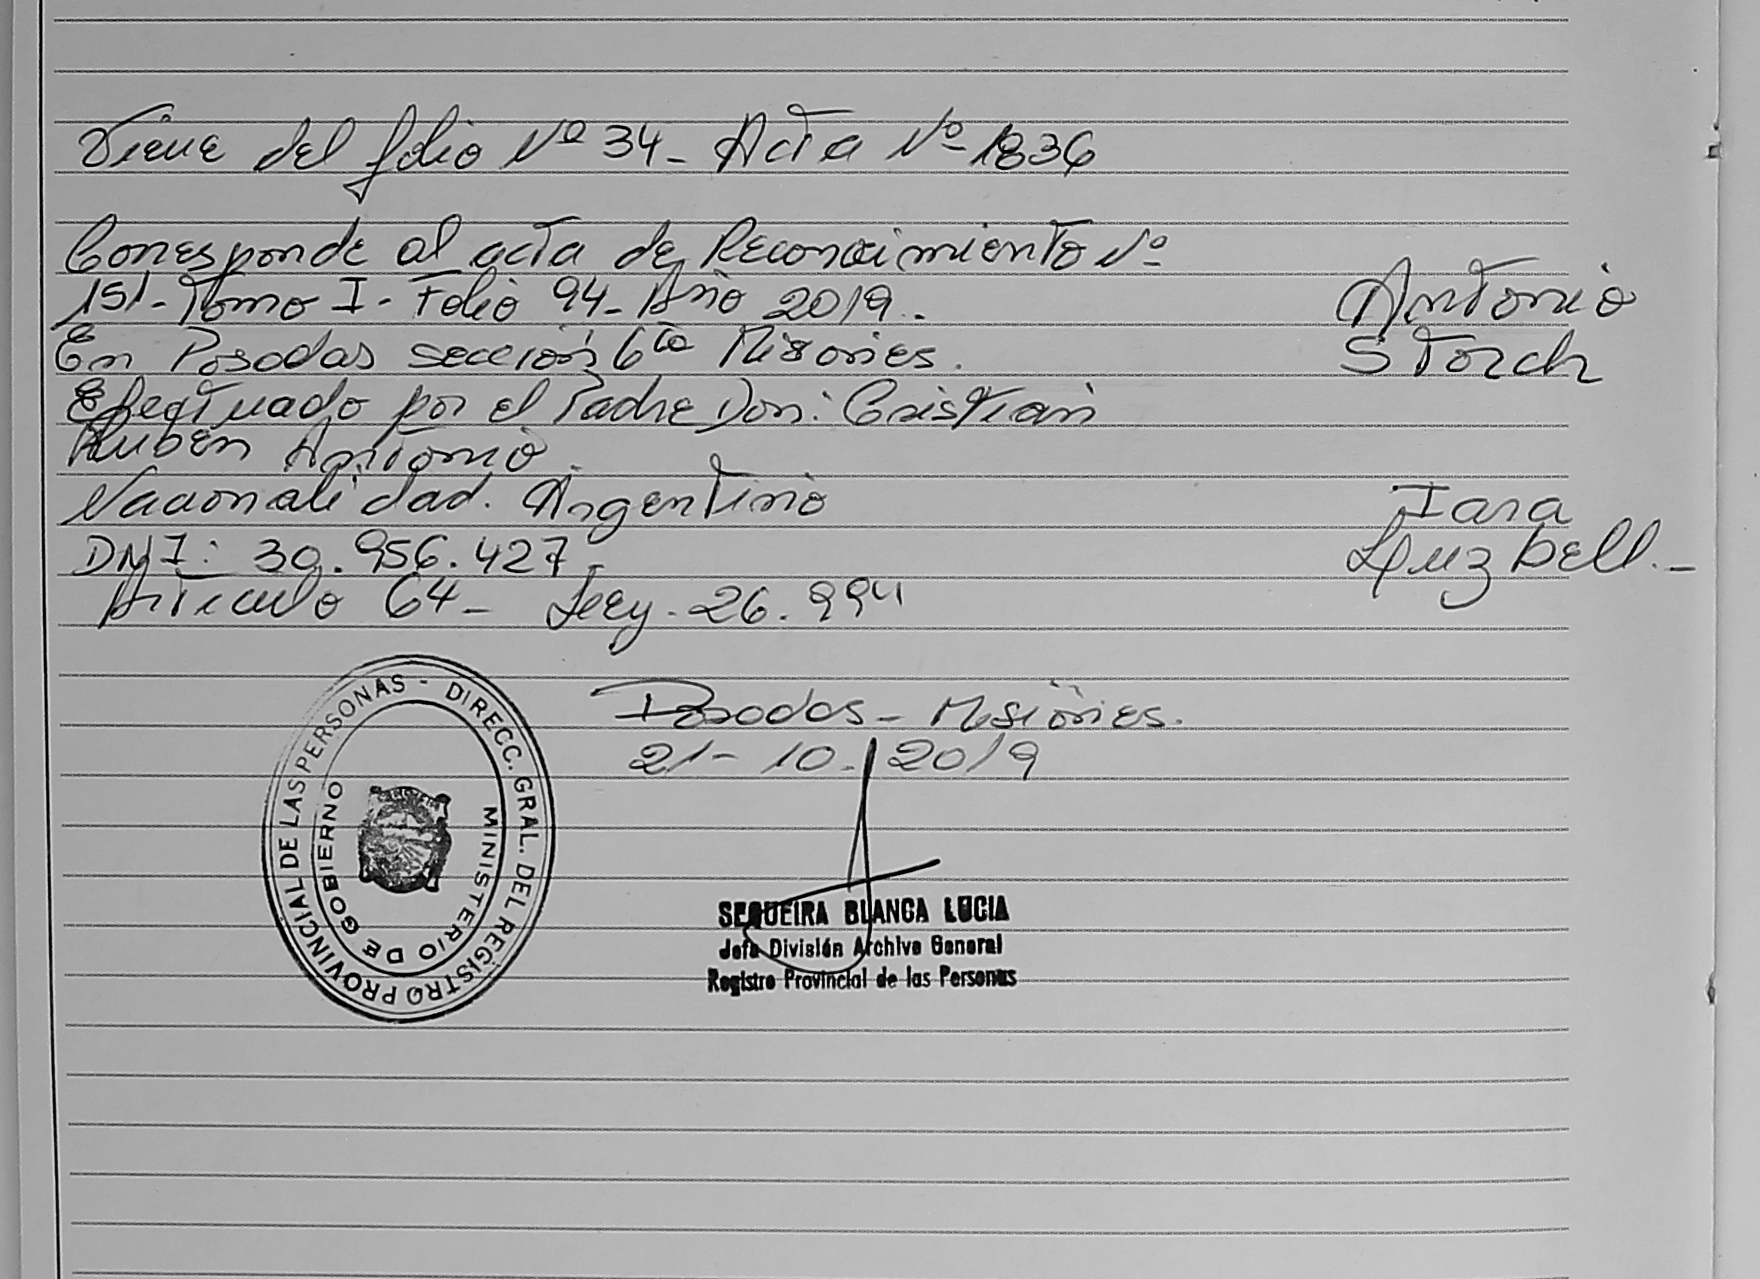 Viene del folio Nº 34- Acta Nº 1836
Corresponde al acta de Reconocimiento Nº
151- Tomo I- Folio 94- Año 2019.-
En Posadas sección 6ta Misiones.
Efectuado por el Padre Don: Cristian
Ruben Antonio.
Nacionalidad. Argentino
DNI: 30.956.427-
Articulo 64- Ley- 26.994
Antonio
Storch
Iara
Luzbell.-
Posadas- Misiones.
21-10-2019
DIRECC. GRAL. DEL REGISTRO PROVINCIAL DE LAS PERSONAS -
MINISTERIO DE GOBIERNO
SEQUEIRA BLANCA LUCIA
Jefa División Archivo General
Registro Provincial de las Personas